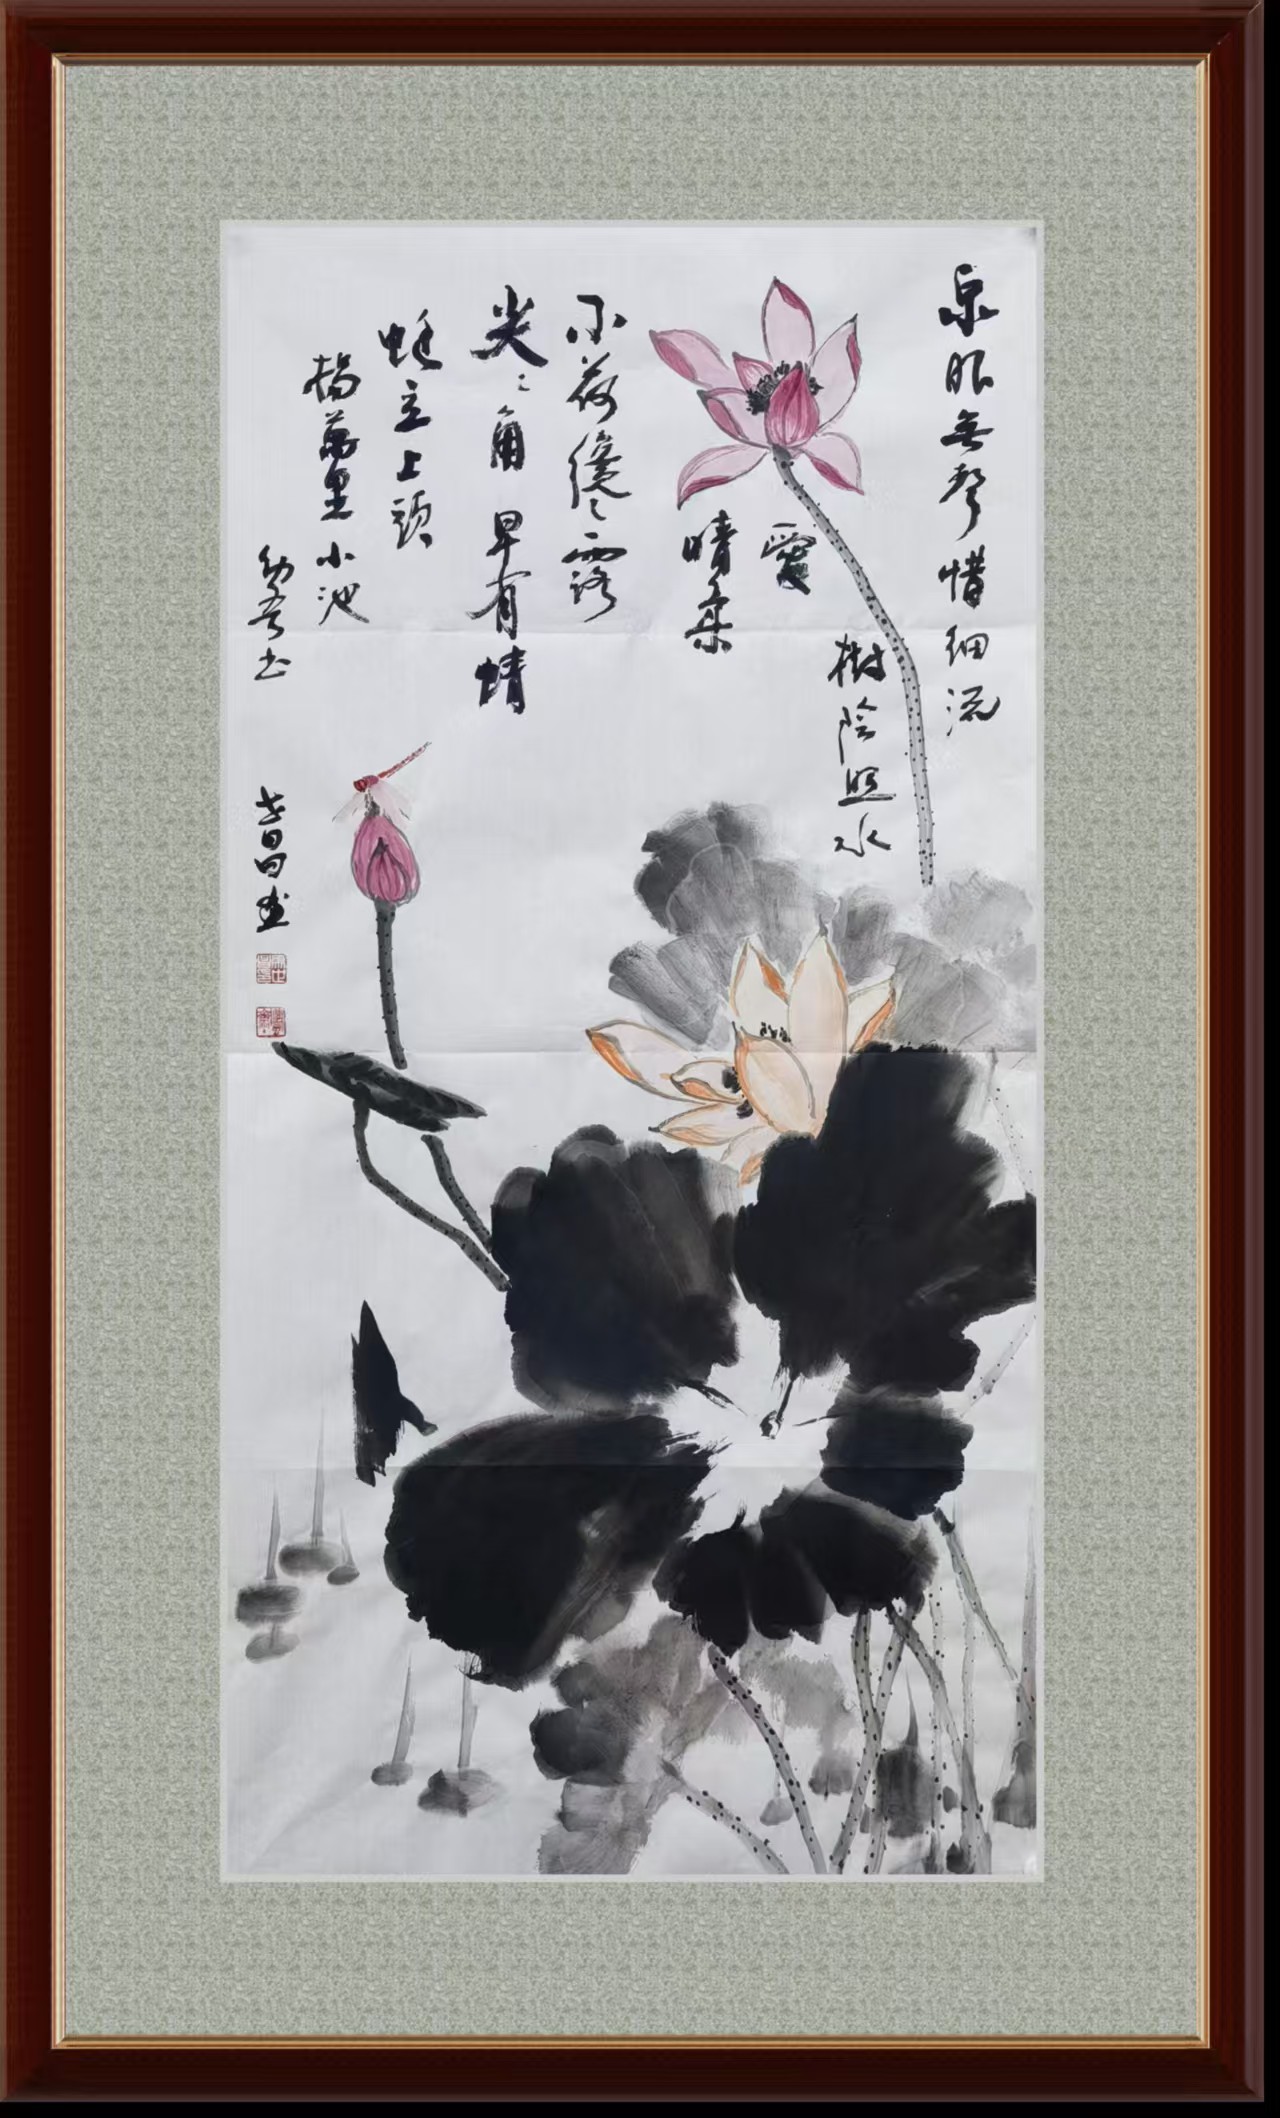 泉眼無聲惜細流
樹陰照水
愛
晴柔
小荷纔〻露
尖〻角早有蜻
蜓立上頭
楊萬里小池
幼吾书
昌画